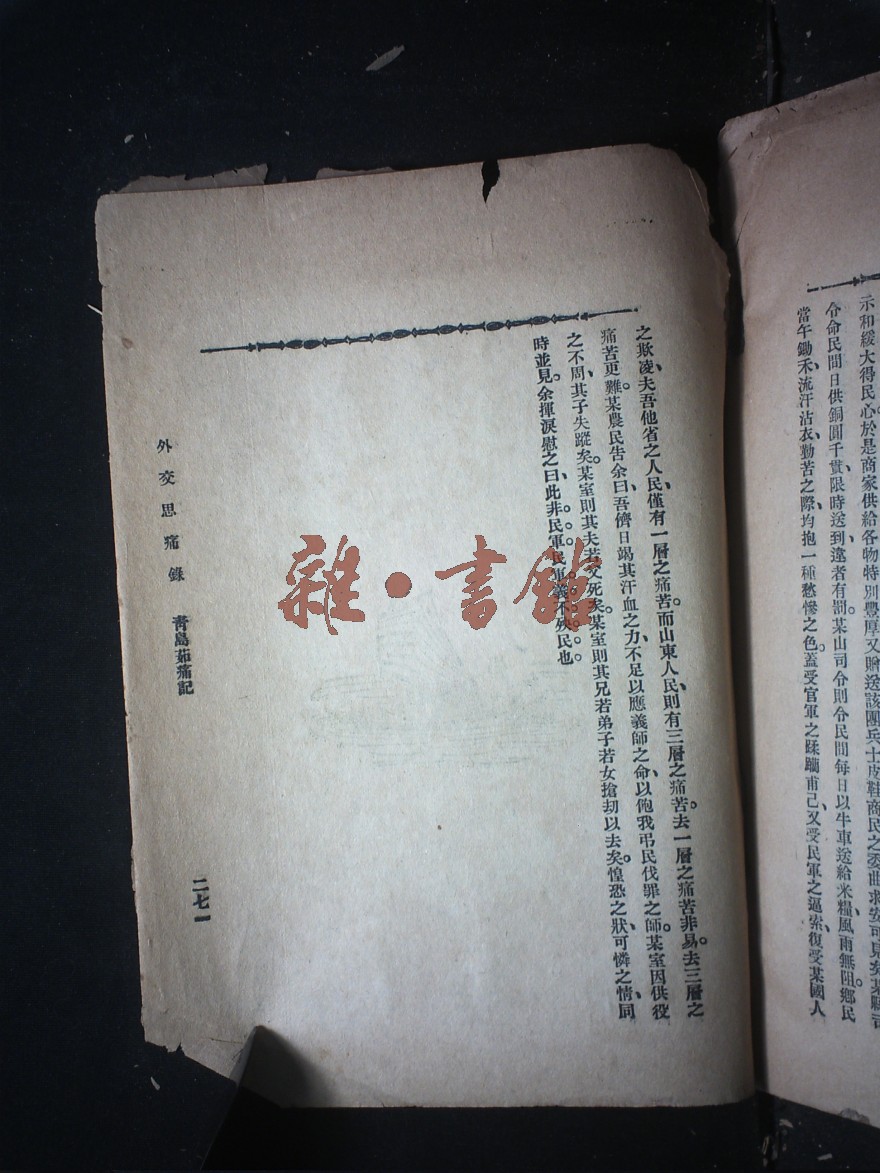 示和緩大得民心。於是商家供給各物特別豐厚又贈送該團兵士皮鞋商民之委曲求安可見矣某縣司
令命民間日供銅圓千貫、限時送到、違者有罰。某山司令則令民間每日以牛車送給米糧、風雨無阻。鄉民
當午鋤禾、流汗沾衣、勤苦之際、均抱一種愁慘之色。蓋受官軍之蹂躪甫已、又受民軍之逼索、復受某國人
之欺凌、夫吾他省之人民、僅有一層之痛苦。而山東人民、則有三層之痛苦。去一層之痛苦非易。去三層之
痛苦更難。某農民告余曰、吾儕日竭其汗血之力、不足以應義師之命、以飽我弔民伐罪之師。某室因供役
之不周、其子失蹤矣。某室則其夫若父死矣。某室則其兄若弟子若女搶刼以去矣。惶恐之狀、可憐之情、同
時並見。余揮淚慰之曰、此非民軍。民軍義不殃民也。
外交思痛錄 青島茹痛記
二七一
雜·書館